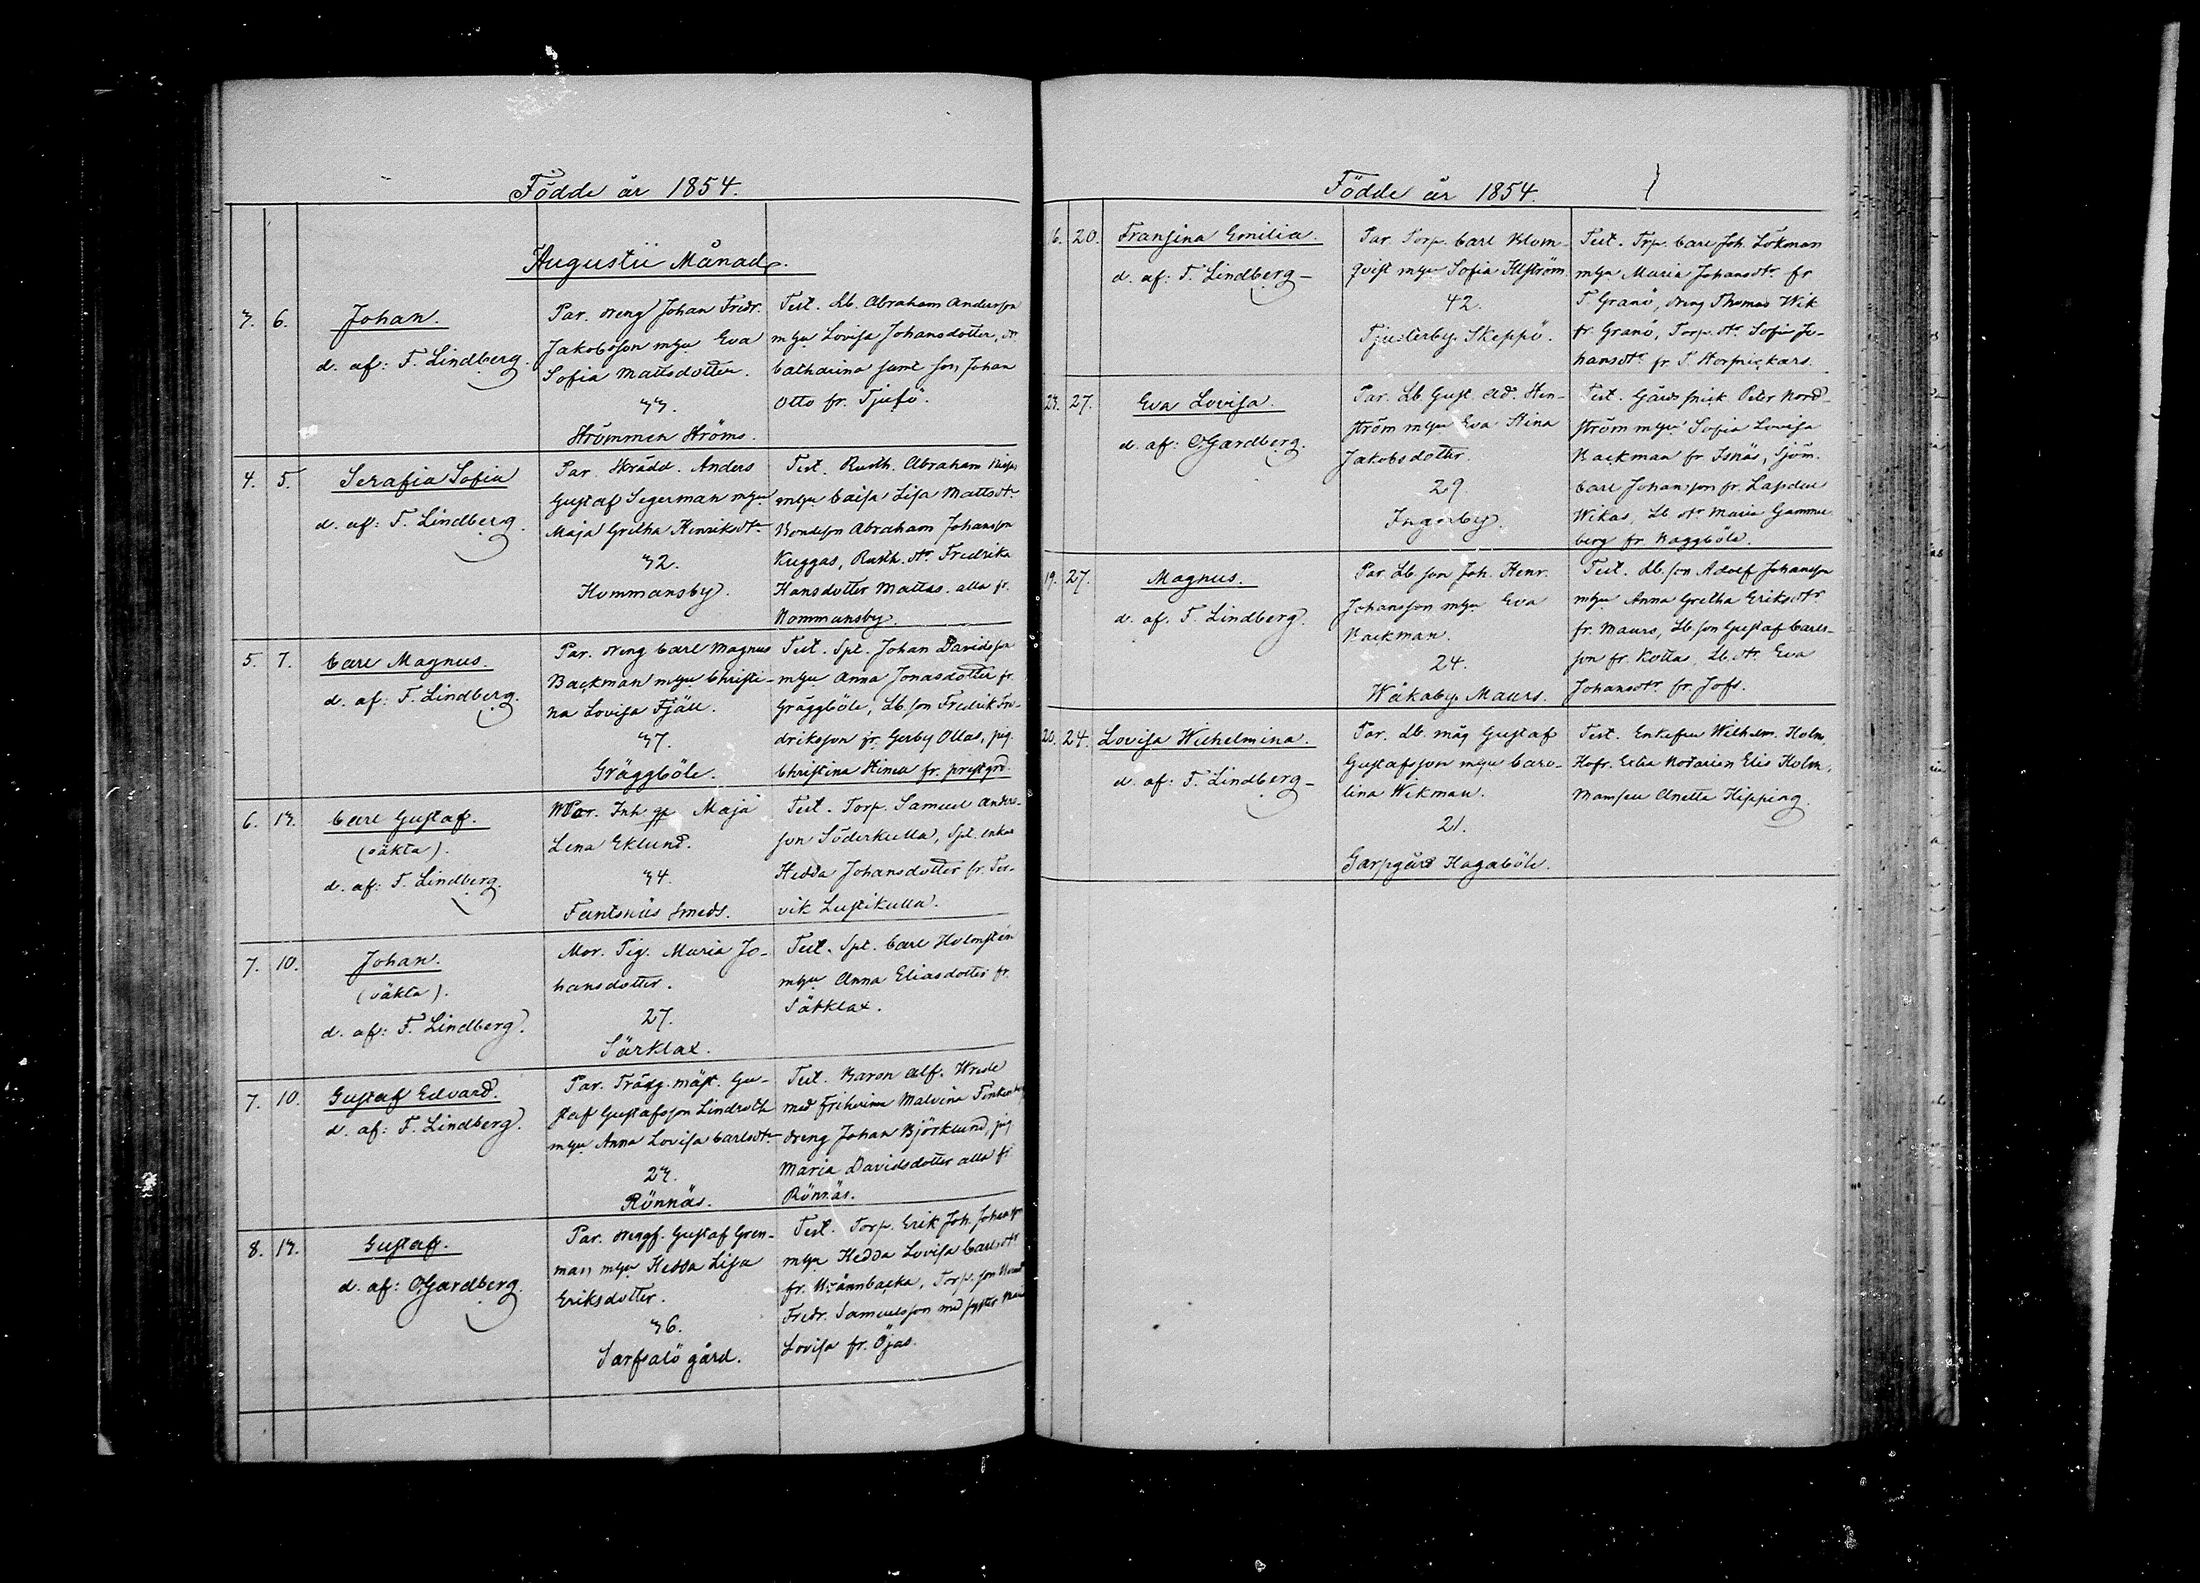 Födde år 1854.
Augustii Månad.
3. 6. Johan.
d. af: F. Lindberg.
Par. dreng Johan Fredr.
Jakobsson mhu Eva
Sofia Mattsdotter.
33.
Strömmen Ströms.
Test. Lb. Abraham Andersson
mhu Lovisa Johansdotter, dr
Catharina samt son Johan
Otto fr. Tjufö.
4. 5. Serafia Sofia
d. af: F. Lindberg.
Par. Skrädd. Anders
Gustaf Segerman mhu
Maja Gretha Henriksdr
32.
Hommansby.
Test. Rusth. Abraham
mhu Caisa Lisa Mattsdr
Bondeson Abraham Johansson
Kuggas, Rusth. dr Fredrika
Hansdotter Mattas. alla fr.
Hommansby.
5. 7. Carl Magnus.
d. af: F. Lindberg.
Par. dreng Carl Magnus
Backman mhu Christi-
na Lovisa Fjäll.
37.
Gräggböle.
Test. Spt. Johan Davidsson
mhu Anna Jonasdotter fr.
Gräggböle, Lb. son Fredrik Fre-
driksson fr. Gerby Ollas, pig.
Christina Stina fr. prestgrd.
6. 13. Carl Gustaf.
(oäkta).
d. af: F. Lindberg.
Mor. Inh. qp Maja
Lena Eklund.
34.
Fantsnäs Smeds.
Test. Torp. Samuel Anders-
son Söderkulla, Spt. enkan
Hedda Johansdotter fr. Ter-
vik Lustikulla.
7. 10. Johan.
(oäkta).
d. af: F. Lindberg.
Mor. Pig. Maria Jo-
hansdotter.
27.
Särklax.
Test. Spt. Carl Holmstén
mhu Anna Eliasdotter fr.
Särklax.
7. 10. Gustaf Edvard.
d. af: F. Lindberg.
Par. Trädg. mäst. Gu-
staf Gustafsson Lindroth
mhu Anna Lovisa Carlsdr
23.
Rönnäs.
Test. Baron Alf. Wrede
med Friherinn Malvina
dreng Johan Björklund, pig.
Maria Davidsdotter alla fr.
Rönnäs.
8. 13. Gustaf.
d. af: O. Gardberg.
Par. drengf. Gustaf Gren-
man mhu Hedda Lisa
Eriksdotter.
36.
Sarfsalö gård.
Test. Torp. Erik Joh. Johansson
mhu Hedda Lovisa Carlsdr
fr. Wännbacka, Torp. son
Fredr. Samuelsson med syster
Lovisa fr. Öjas.
Födde år 1854.
16. 20. Fransina Emilia.
d. af: F. Lindberg
Par. Torp. Carl Blom-
qvist mhu Sofia Alström.
42.
Tjusterby. Skeppö.
Test. Trp. Carl Joh. Lökman
mhu Maria Johansdr fr
T. Granö, dreng Thomas Wik
fr. Granö, Torp. dr Sofia Jo-
hansdr fr. S.
23. 27. Eva Lovisa.
d. af: O. Gardberg.
Par. Lb. Gust. Ad. Hen-
ström mhu Eva Stina
Jakobsdotter.
29.
Ingerby.
Test. Gårdssnick Peter Nord-
ström mhu Sofia Lovisa
Backman fr. Isnäs, Sjöm.
Carl Johansson fr. Lapden
Wikas, Lb. dr Maria Gammel
berg fr. Kaggböle.
19. 27. Magnus.
d. af. F. Lindberg.
Par. Lb. son Joh. Henr.
Johansson mhu Eva
Backman.
24.
Wåkaby. Maurs.
Test. Lb. son Adolf Johansson
mhu Anna Gretha Eriksdr
fr. Maurs, Lb. son Gustaf Carls-
son fr. Kottas, Lb. dr. Eva
Johansdr fr. Jofs.
20. 24. Lovisa Wilhelmina.
d. af: F. Lindberg
Par. Lb. måg Gustaf
Gustafsson mhu Caro-
lina Wikman.
21.
Garpgård Hagaböle.
Test. Enkefru Wilhelm. Holm,
Hofr. Extra Notarien Elis Holm,
Mamsell Anetta Hipping.